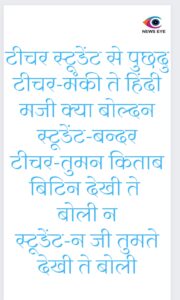 NEWS EYE
टीचर स्टूडेंट से पुछदु
टीचर-मंकी ते हिंदी
मजी क्या बोल्दन
स्टूडेंट-बन्दर
टीचर-तुमन किताब
बिटिन देखी ते
बोली न
स्टूडेंट-न जी तुमते
देखी ते बोली